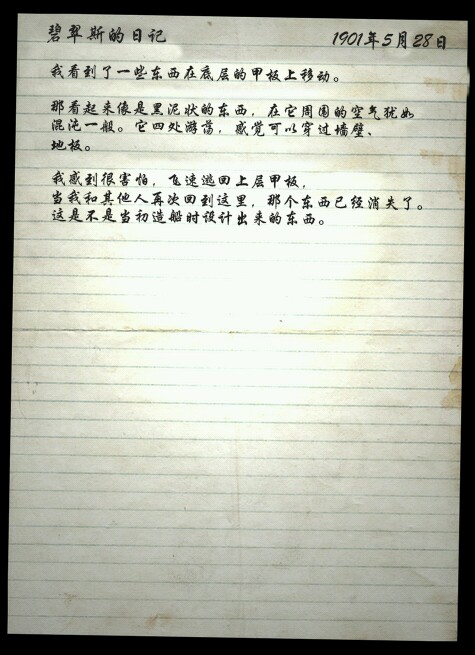 碧翠斯的日记
1901年5月28日
我看到了一些东西在底层的甲板上移动。
那看起来像是黑泥状的东西，在它周围的空气犹如
混沌一般。它四处游荡，感觉可以穿过墙壁、
地板。
我感到很害怕，飞速逃回上层甲板，
当我和其他人再次回到这里，那个东西已经消失了。
这是不是当初造船时设计出来的东西。